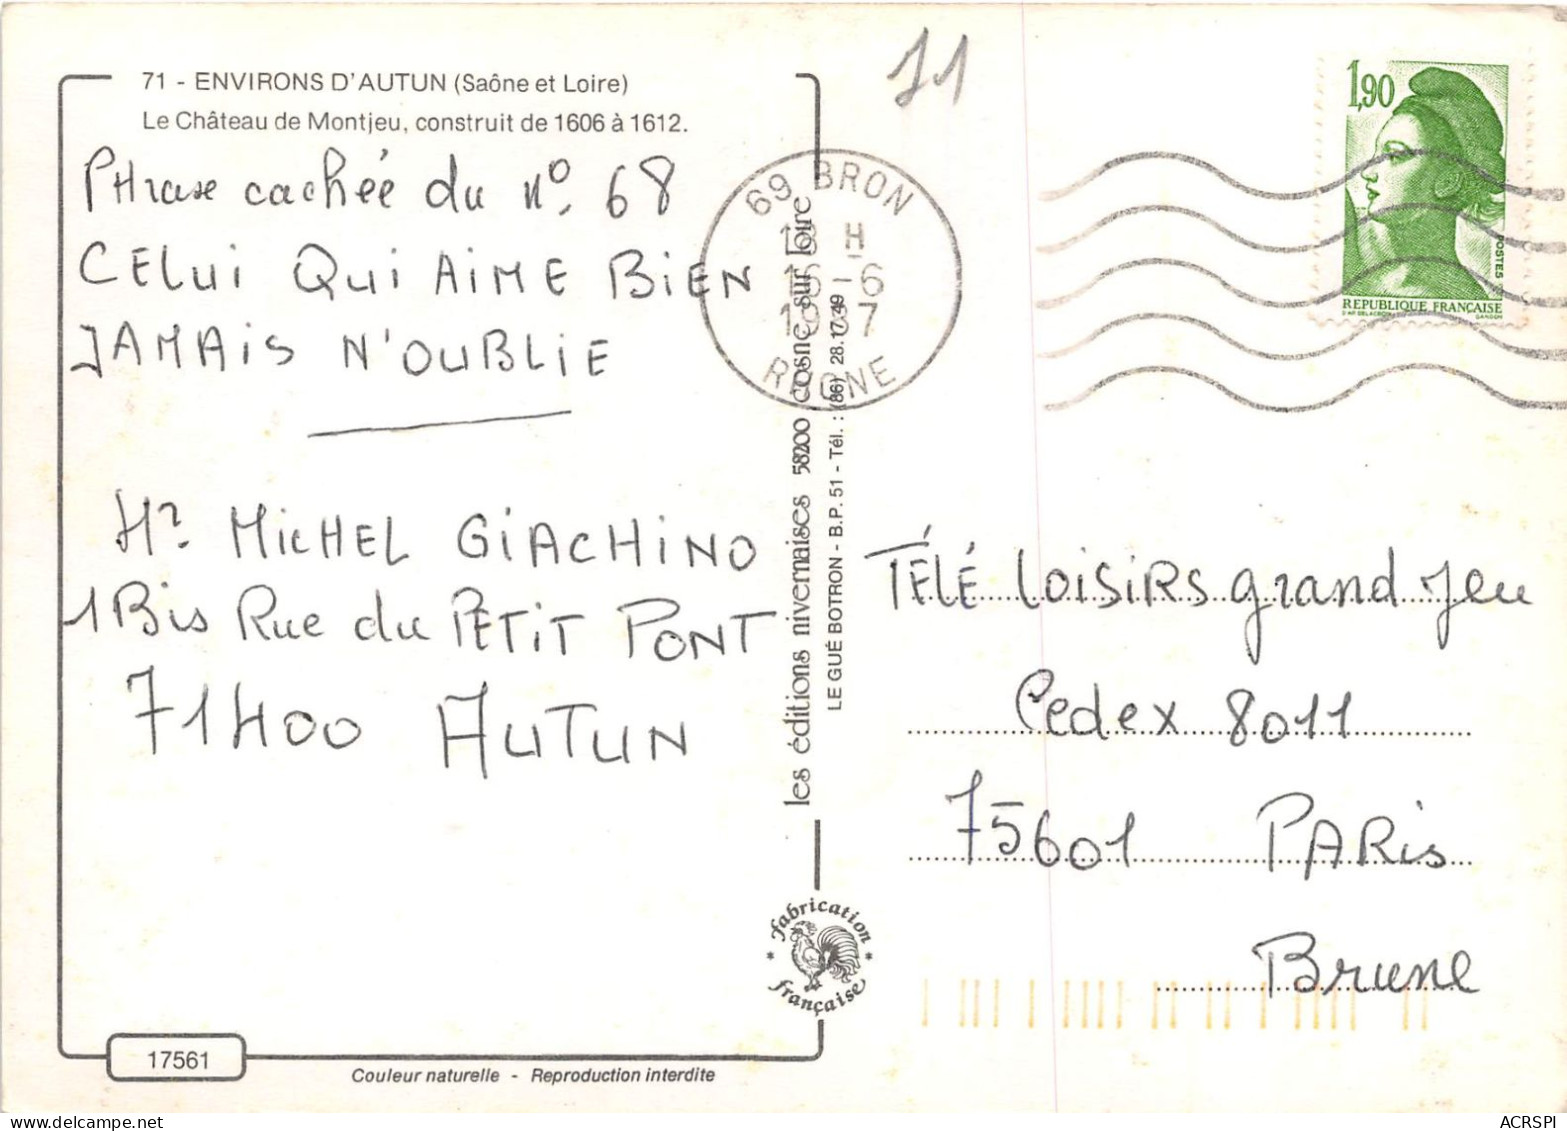 71 - ENVIRONS D'AUTUN (Saône et Loire)
Le Château de Montjeu, construit de 1606 à 1612.
Phrase cachée du n° 68
CELui Qui AiME BiEN
JAMAiS N'OUBLiE
Mr MicHEL GiACHiNO
1 Bis Rue du PETiT PONT
71400 AUTUN
17561
Couleur naturelle - Reproduction interdite
les éditions nivernaises 58200 cosne sur loire
LE GUÉ BOTRON - B.P. 51 - Tél. : (86) 28.17.49
fabrication
française
71
69 BRON
H
-6
RHONE
1,90
POSTES
REPUBLIQUE FRANÇAISE
D'AP. DELACROIX
GANDON
TÉLÉ LoisiRs grand Jeu
Cedex 8011
75601 PARis
Brune
ACRSPI